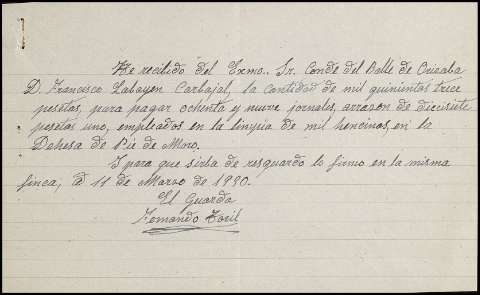 He recibido del Exmo. Sr. Conde del Balle de Orizaba
D. Francisco Laboyen Carbajal, la cantidad de mil quinientas trece
pesetas, para pagar ochenta y nueve jornales, arrazon de diecisiete
pesetas uno, empleados en la linpia de mil hencinos, en la
Dehesa de Pie de Moro.
I para que sirba de resguardo lo firmo en la misma
finca, a 11 de Marzo de 1950.
El Guarda
Fernando Toril